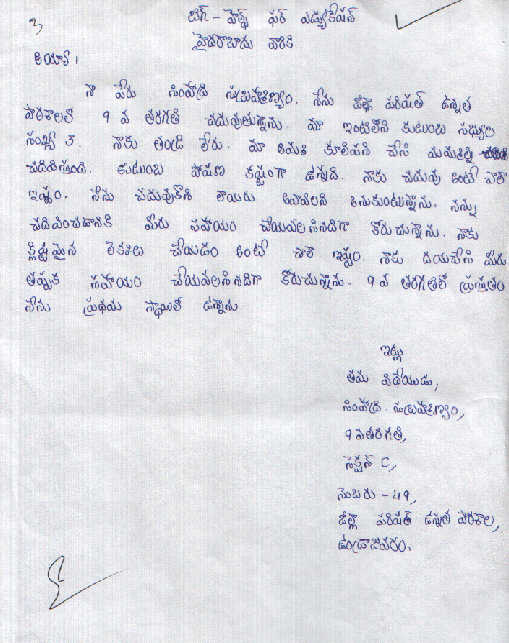 3
బిగ్ - హెల్ప్ ఫర్ ఎడ్యుకేషన్
హైదరాబాదు వారికి
అయ్యా!
నా పేరు సింహాద్రి సుబ్రహ్మణ్యం. నేను జిల్లా పరిషత్ ఉన్నత
పాఠశాలలో 9 వ తరగతి చదువుతున్నాను. మా ఇంటిలోని కుటుంబ సభ్యుల
సంఖ్య 3. నాకు తండ్రి లేరు. మా అమ్మ కూలిపని చేసి మమ్మల్ని
చదివిస్తుంది. కుటుంబ పోషణ కష్టంగా ఉన్నది. నాకు చదువు అంటే చాలా
ఇష్టం. నేను చదువుకొని లాయరు అవ్వాలని అనుకుంటున్నాను. నన్ను
చదివించడానికి మీరు సహాయం చేయవలసినదిగా కోరుచున్నాను. నాకు
క్లిష్టమైన లెక్కలు చేయడం అంటే చాలా ఇష్టం నాకు దయచేసి మీరు
తప్పక సహాయం చేయవలసినదిగా కోరుచున్నాను. 9 వ తరగతిలో ప్రస్తుతం
నేను ప్రథమ స్థాయిలో ఉన్నాను
ఇట్లు
తమ విధేయుడు,
సింహాద్రి. సుబ్రహ్మణ్యం,
9 వ తరగతి,
సెక్షన్ C,
నెంబరు - 49,
జిల్లా పరిషత్ ఉన్నత పాఠశాల,
ఉండ్రాజవరం.